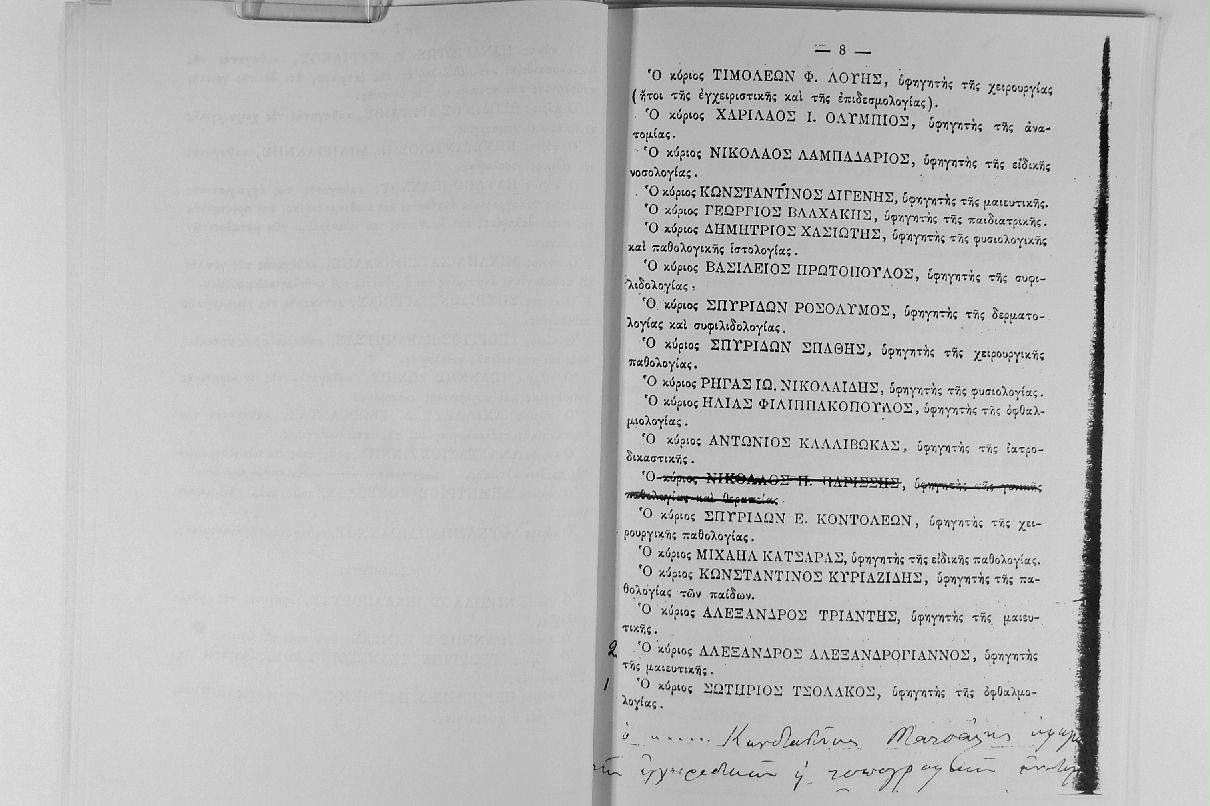 — 8 —
Ὁ κύριος ΤΙΜΟΛΕΩΝ Φ. ΛΟΥΗΣ, ὑφηγητὴς τῆς χειρουργίας
(ἤτοι τῆς ἐγχειριστικῆς καὶ τῆς ἐπιδεσμολογίας).
Ὁ κύριος ΧΑΡΙΛΑΟΣ Ι. ΟΛΥΜΠΙΟΣ, ὑφηγητὴς τῆς ἀνα-
τομίας.
Ὁ κύριος ΝΙΚΟΛΑΟΣ ΛΑΜΠΑΔΑΡΙΟΣ, ὑφηγητὴς τῆς εἰδικῆς
νοσολογίας.
Ὁ κύριος ΚΩΝΣΤΑΝΤΙΝΟΣ ΔΙΓΕΝΗΣ, ὑφηγητὴς τῆς μαιευτικῆς.
Ὁ κύριος ΓΕΩΡΓΙΟΣ ΒΛΑΧΑΚΗΣ, ὑφηγητὴς τῆς παιδιατρικῆς.
Ὁ κύριος ΔΗΜΗΤΡΙΟΣ ΧΑΣΙΩΤΗΣ, ὑφηγητὴς τῆς φυσιολογικῆς
καὶ παθολογικῆς ἱστολογίας.
Ὁ κύριος ΒΑΣΙΛΕΙΟΣ ΠΡΩΤΟΠΟΥΛΟΣ, ὑφηγητὴς τῆς συφι-
λιδολογίας.
Ὁ κύριος ΣΠΥΡΙΔΩΝ ΡΟΣΟΛΥΜΟΣ, ὑφηγητὴς τῆς δερματο-
λογίας καὶ συφιλιδολογίας.
Ὁ κύριος ΣΠΥΡΙΔΩΝ ΣΠΑΘΗΣ, ὑφηγητὴς τῆς χειρουργικῆς
παθολογίας.
Ὁ κύριος ΡΗΓΑΣ ΙΩ. ΝΙΚΟΛΑΙΔΗΣ, ὑφηγητὴς τῆς φυσιολογίας.
Ὁ κύριος ΗΛΙΑΣ ΦΙΛΙΠΠΑΚΟΠΟΥΛΟΣ, ὑφηγητὴς τῆς ὀφθαλ-
μιολογίας.
Ὁ κύριος ΑΝΤΩΝΙΟΣ ΚΑΛΛΙΒΩΚΑΣ, ὑφηγητὴς τῆς ἰατρο-
δικαστικῆς.
Ὁ κύριος ΝΙΚΟΛΑΟΣ Π. ΠΑΡΙΣΣΗΣ, ὑφηγητὴς τῆς γενικῆς
παθολογίας καὶ θεραπείας
Ὁ κύριος ΣΠΥΡΙΔΩΝ Ε. ΚΟΝΤΟΛΕΩΝ, ὑφηγητὴς τῆς χει-
ρουργικῆς παθολογίας.
Ὁ κύριος ΜΙΧΑΗΛ ΚΑΤΣΑΡΑΣ, ὑφηγητὴς τῆς εἰδικῆς παθολογίας.
Ὁ κύριος ΚΩΝΣΤΑΝΤΙΝΟΣ ΚΥΡΙΑΖΙΔΗΣ, ὑφηγητὴς τῆς πα-
θολογίας τῶν παίδων.
Ὁ κύριος ΑΛΕΞΑΝΔΡΟΣ ΤΡΙΑΝΤΗΣ, ὑφηγητὴς τῆς μαιευ-
τικῆς.
2 Ὁ κύριος ΑΛΕΞΑΝΔΡΟΣ ΑΛΕΞΑΝΔΡΟΓΙΑΝΝΟΣ, ὑφηγητὴς
τῆς μαιευτικῆς.
1 Ὁ κύριος ΣΩΤΗΡΙΟΣ ΤΣΟΛΑΚΟΣ, ὑφηγητὴς τῆς ὀφθαλμο-
λογίας.
ὁ ...... Κωνσταντῖνος
ἢ τοπογραφικῆς